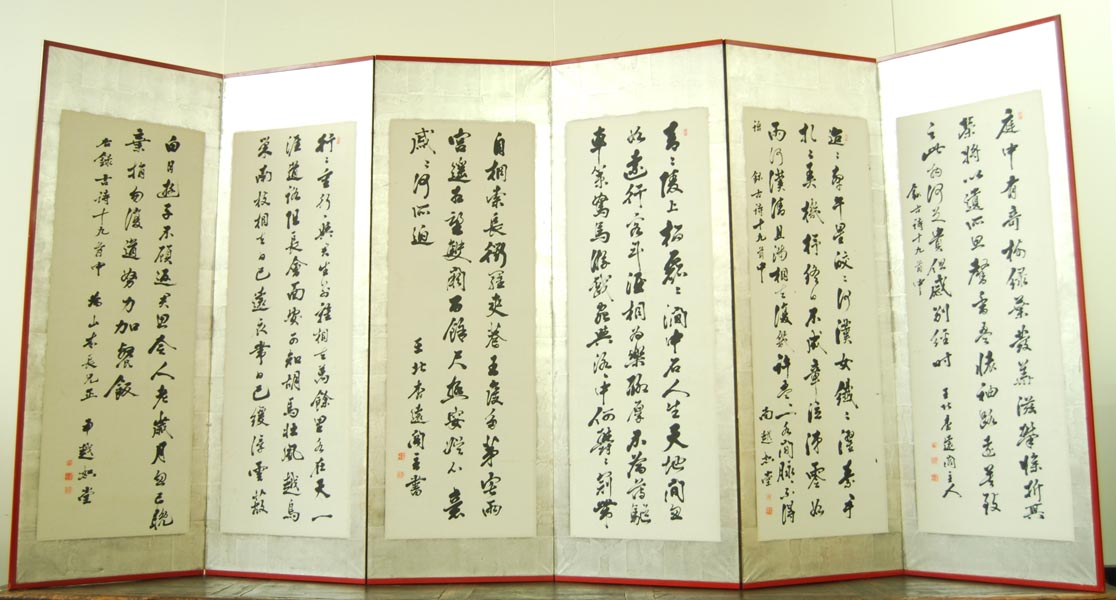 庭中有奇樹綠葉發華滋攀條折其
榮將以遺所思馨香盈懷袖路遠莫致
之此物何足貴但感別經時
錄古詩十九首中
北香遠閣主人
迢々牽牛星皎々河漢女纖々濯素手
札々弄機杼終日不成章泣涕零如
雨河漢清且淺相去復幾許盈々一水間脈不得
語 錄古詩十九首中 南越知堂
青々陵上柏磊々澗中石人生天地間忽
如遠行客斗酒相為樂聊厚不為薄驅
車策駑馬游戲宛與洛中何鬱々冠帶々
自相索長衢羅夾巷王侯多第宅兩
宮遙相望雙闕百餘尺極宴娛心意
戚々何所迫
北香遠閣主書
行々重行々與君生別離相去萬餘里各在天一
涯道路阻長會面安可知胡馬壯風越鳥
巢南枝相去日已遠衣帶日已緩浮雲蔽
白日遊子不顧返君思令人老歲月忽已晚
棄捐勿復道努力加餐飯
右錄古詩十九首中 為山本長兄正 南越知堂